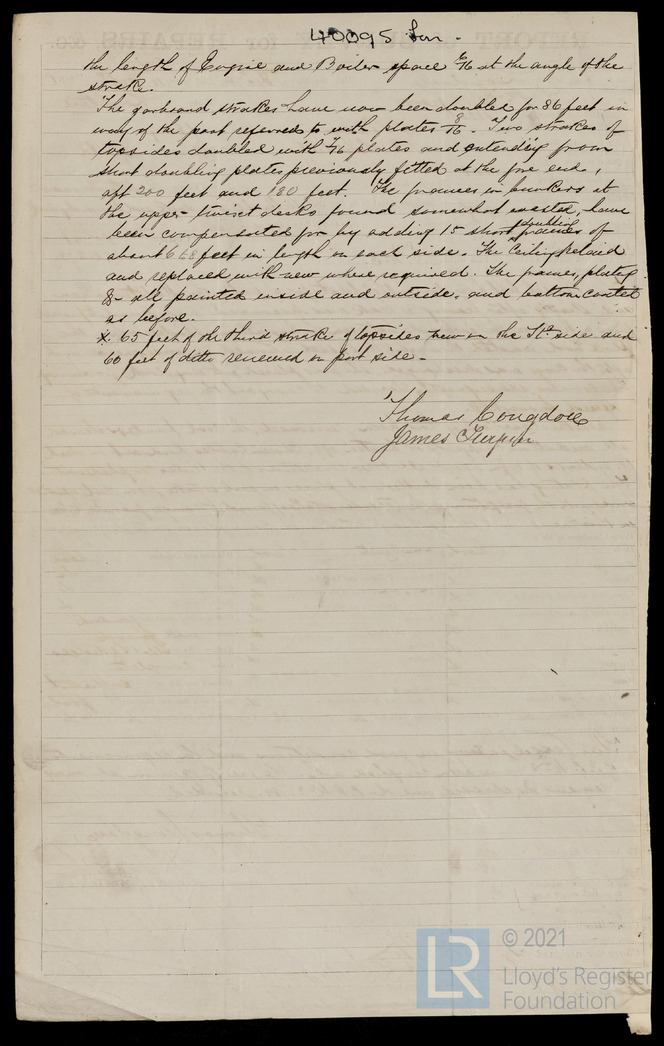 40095 Lon.
the length of Engine and Boiler space 6/16 at the angle of the
strake.
The garboard strakes have now been doubled for 86 feet in
way of the part referred to with plates 8/16. Two strakes of
topsides doubled with 7/16 plates and extending from
short doubling plates previously fitted at the fore end,
aft 200 feet and 180 feet. The frames in bunkers at
the upper tween decks found somewhat wasted, have
been compensated for by adding 15 short doubling frames of
about 6 feet in length on each side. The Ceiling relaid
and replaced with new where required. The frames, plating
&c all painted inside and outside, and bottom coated
as before.
X. 65 feet of the third strake of topsides new on the St'd side and
60 feet of ditto renewed on port side.
Thomas Congdon
James Turpin
LR
© 2021
Lloyd's Register
Foundation